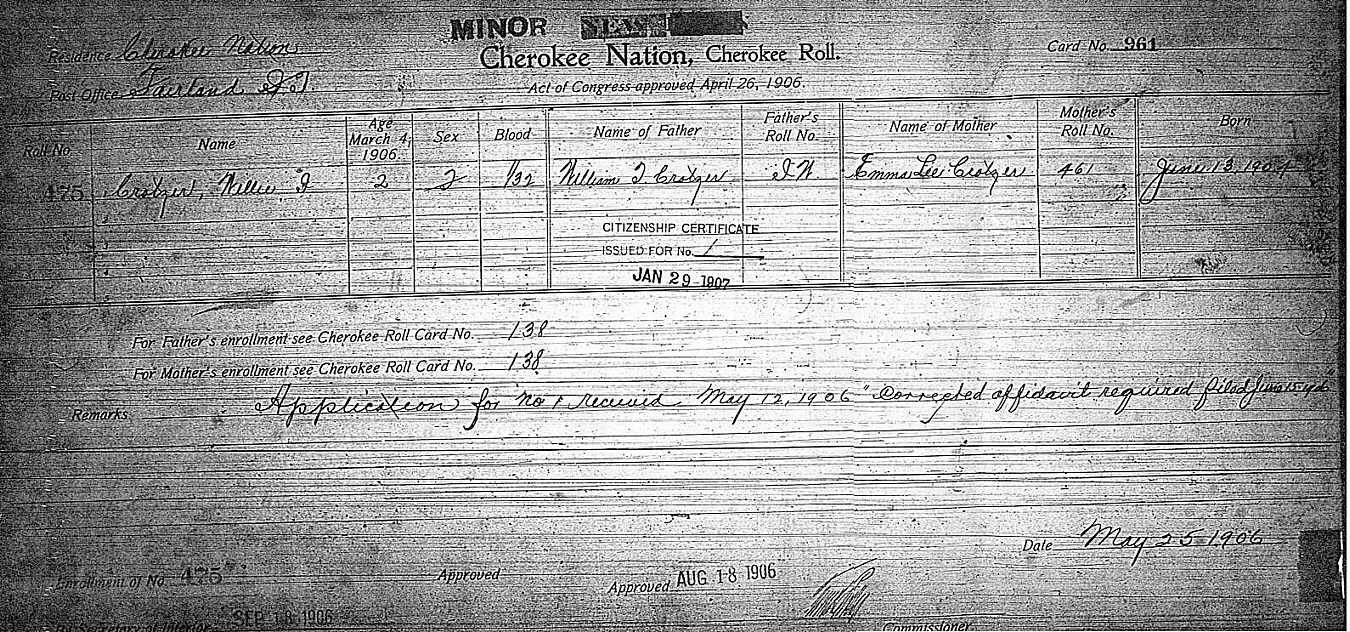 MINOR
Residence Cherokee Nation
Cherokee Nation, Cherokee Roll.
Card No. 961
Post Office Fairland I.T.
Act of Congress approved April 26, 1906.
Roll No. Name Age March 4, 1906. Sex Blood Name of Father Father's Roll No. Name of Mother Mother's Roll No. Born
475 Crotzer, Willie 2 1/32 William T. Crotzer I.W. Emma Lee Crotzer 461 June 13, 1904
CITIZENSHIP CERTIFICATE
ISSUED FOR No. 1
JAN 29 1907
For Father's enrollment see Cherokee Roll Card No. 138
For Mother's enrollment see Cherokee Roll Card No. 138
Remarks Application for No 1 received May 12, 1906 "Corrected affidavit required filed
Date May 25 1906
Enrollment of No. 475
Approved
Approved AUG 18 1906
SEP 18 1906
By Secretary of Interior
Commissioner.